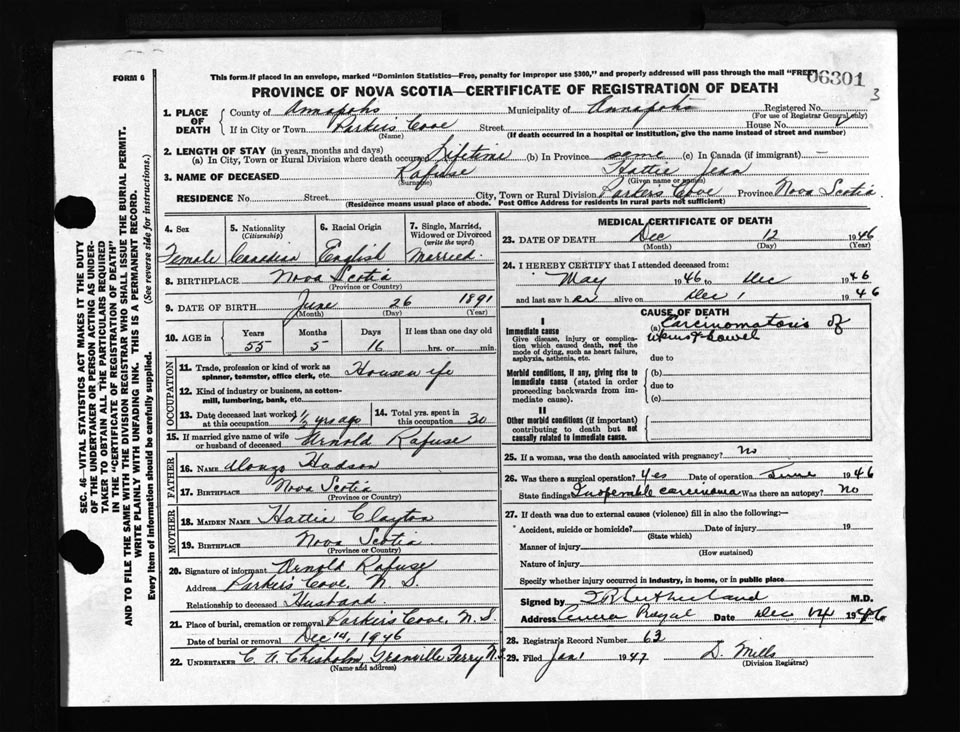 FORM 6
This form if placed in an envelope, marked "Dominion Statistics—Free, penalty for improper use $300," and properly addressed will pass through the mail "FREE"
06301
3
PROVINCE OF NOVA SCOTIA—CERTIFICATE OF REGISTRATION OF DEATH
1. PLACE OF DEATH
County of Annapolis Municipality of Annapolis Registered No.
(For use of Registrar General only)
If in City or Town Parker's Cove Street House No.
(Name) (If death occurred in a hospital or institution, give the name instead of street and number)
2. LENGTH OF STAY (in years, months and days)
(a) In City, Town or Rural Division where death occurred Lifetime (b) In Province same (c) In Canada (if immigrant) —
3. NAME OF DECEASED Rafuse Hattie Jean
(Surname) (Given name or names)
RESIDENCE No. Street City, Town or Rural Division Parker's Cove Province Nova Scotia
(Residence means usual place of abode. Post Office Address for residents in rural parts not sufficient)
4. Sex 5. Nationality (Citizenship) 6. Racial Origin 7. Single, Married, Widowed or Divorced (write the word)
Female Canadian English Married.
8. BIRTHPLACE Nova Scotia
(Province or Country)
9. DATE OF BIRTH June 26 1891
(Month) (Day) (Year)
10. AGE in Years Months Days If less than one day old
55 5 16 hrs. or min.
OCCUPATION
11. Trade, profession or kind of work as spinner, teamster, office clerk, etc. Housewife
12. Kind of industry or business, as cotton-mill, lumbering, bank, etc.
13. Date deceased last worked at this occupation 1/2 yrs ago 14. Total yrs. spent in this occupation 30
15. If married give name of wife or husband of deceased Arnold Rafuse
FATHER
16. NAME Alonzo Hudson
17. BIRTHPLACE Nova Scotia
(Province or Country)
MOTHER
18. MAIDEN NAME Hattie Clayton
19. BIRTHPLACE Nova Scotia
(Province or Country)
20. Signature of informant Arnold Rafuse
Address Parker's Cove, N.S.
Relationship to deceased Husband.
21. Place of burial, cremation or removal Parker's Cove, N.S.
Date of burial or removal Dec 14, 1946
22. UNDERTAKER C. A. Chisholm, Granville Ferry N.S.
(Name and address)
MEDICAL CERTIFICATE OF DEATH
23. DATE OF DEATH Dec 12 1946
(Month) (Day) (Year)
24. I HEREBY CERTIFY that I attended deceased from:
May 1946 to Dec 1946
and last saw her alive on Dec 1 1946
CAUSE OF DEATH
I
Immediate cause
Give disease, injury or complication which caused death, not the mode of dying, such as heart failure, asphyxia, asthenia, etc.
(a) Carcinomatosis of
uterus & bowel
due to
Morbid conditions, if any, giving rise to immediate cause (stated in order proceeding backwards from immediate cause).
(b)
due to
(c)
II
Other morbid conditions (if important) contributing to death but not causally related to immediate cause.
25. If a woman, was the death associated with pregnancy? No
26. Was there a surgical operation? Yes Date of operation June 1946
State findings Inoperable carcinoma Was there an autopsy? No
27. If death was due to external causes (violence) fill in also the following:—
Accident, suicide or homicide? Date of injury 19
(State which)
Manner of injury
(How sustained)
Nature of injury
Specify whether injury occurred in industry, in home, or in public place
Signed by Sutherland M.D.
Address Annapolis Royal Date Dec 14 1946
28. Registrar's Record Number 63
29. Filed Jan 1 1947 D. Mills
(Division Registrar)
SEC. 46—VITAL STATISTICS ACT MAKES IT THE DUTY
OF THE UNDERTAKER OR PERSON ACTING AS UNDER-
TAKER TO OBTAIN ALL THE PARTICULARS REQUIRED
IN THE "CERTIFICATE OF REGISTRATION OF DEATH"
AND TO FILE THE SAME WITH THE DIVISION REGISTRAR WHO SHALL ISSUE THE BURIAL PERMIT.
WRITE PLAINLY WITH UNFADING INK. THIS IS A PERMANENT RECORD.
Every item of information should be carefully supplied. (See reverse side for instructions.)